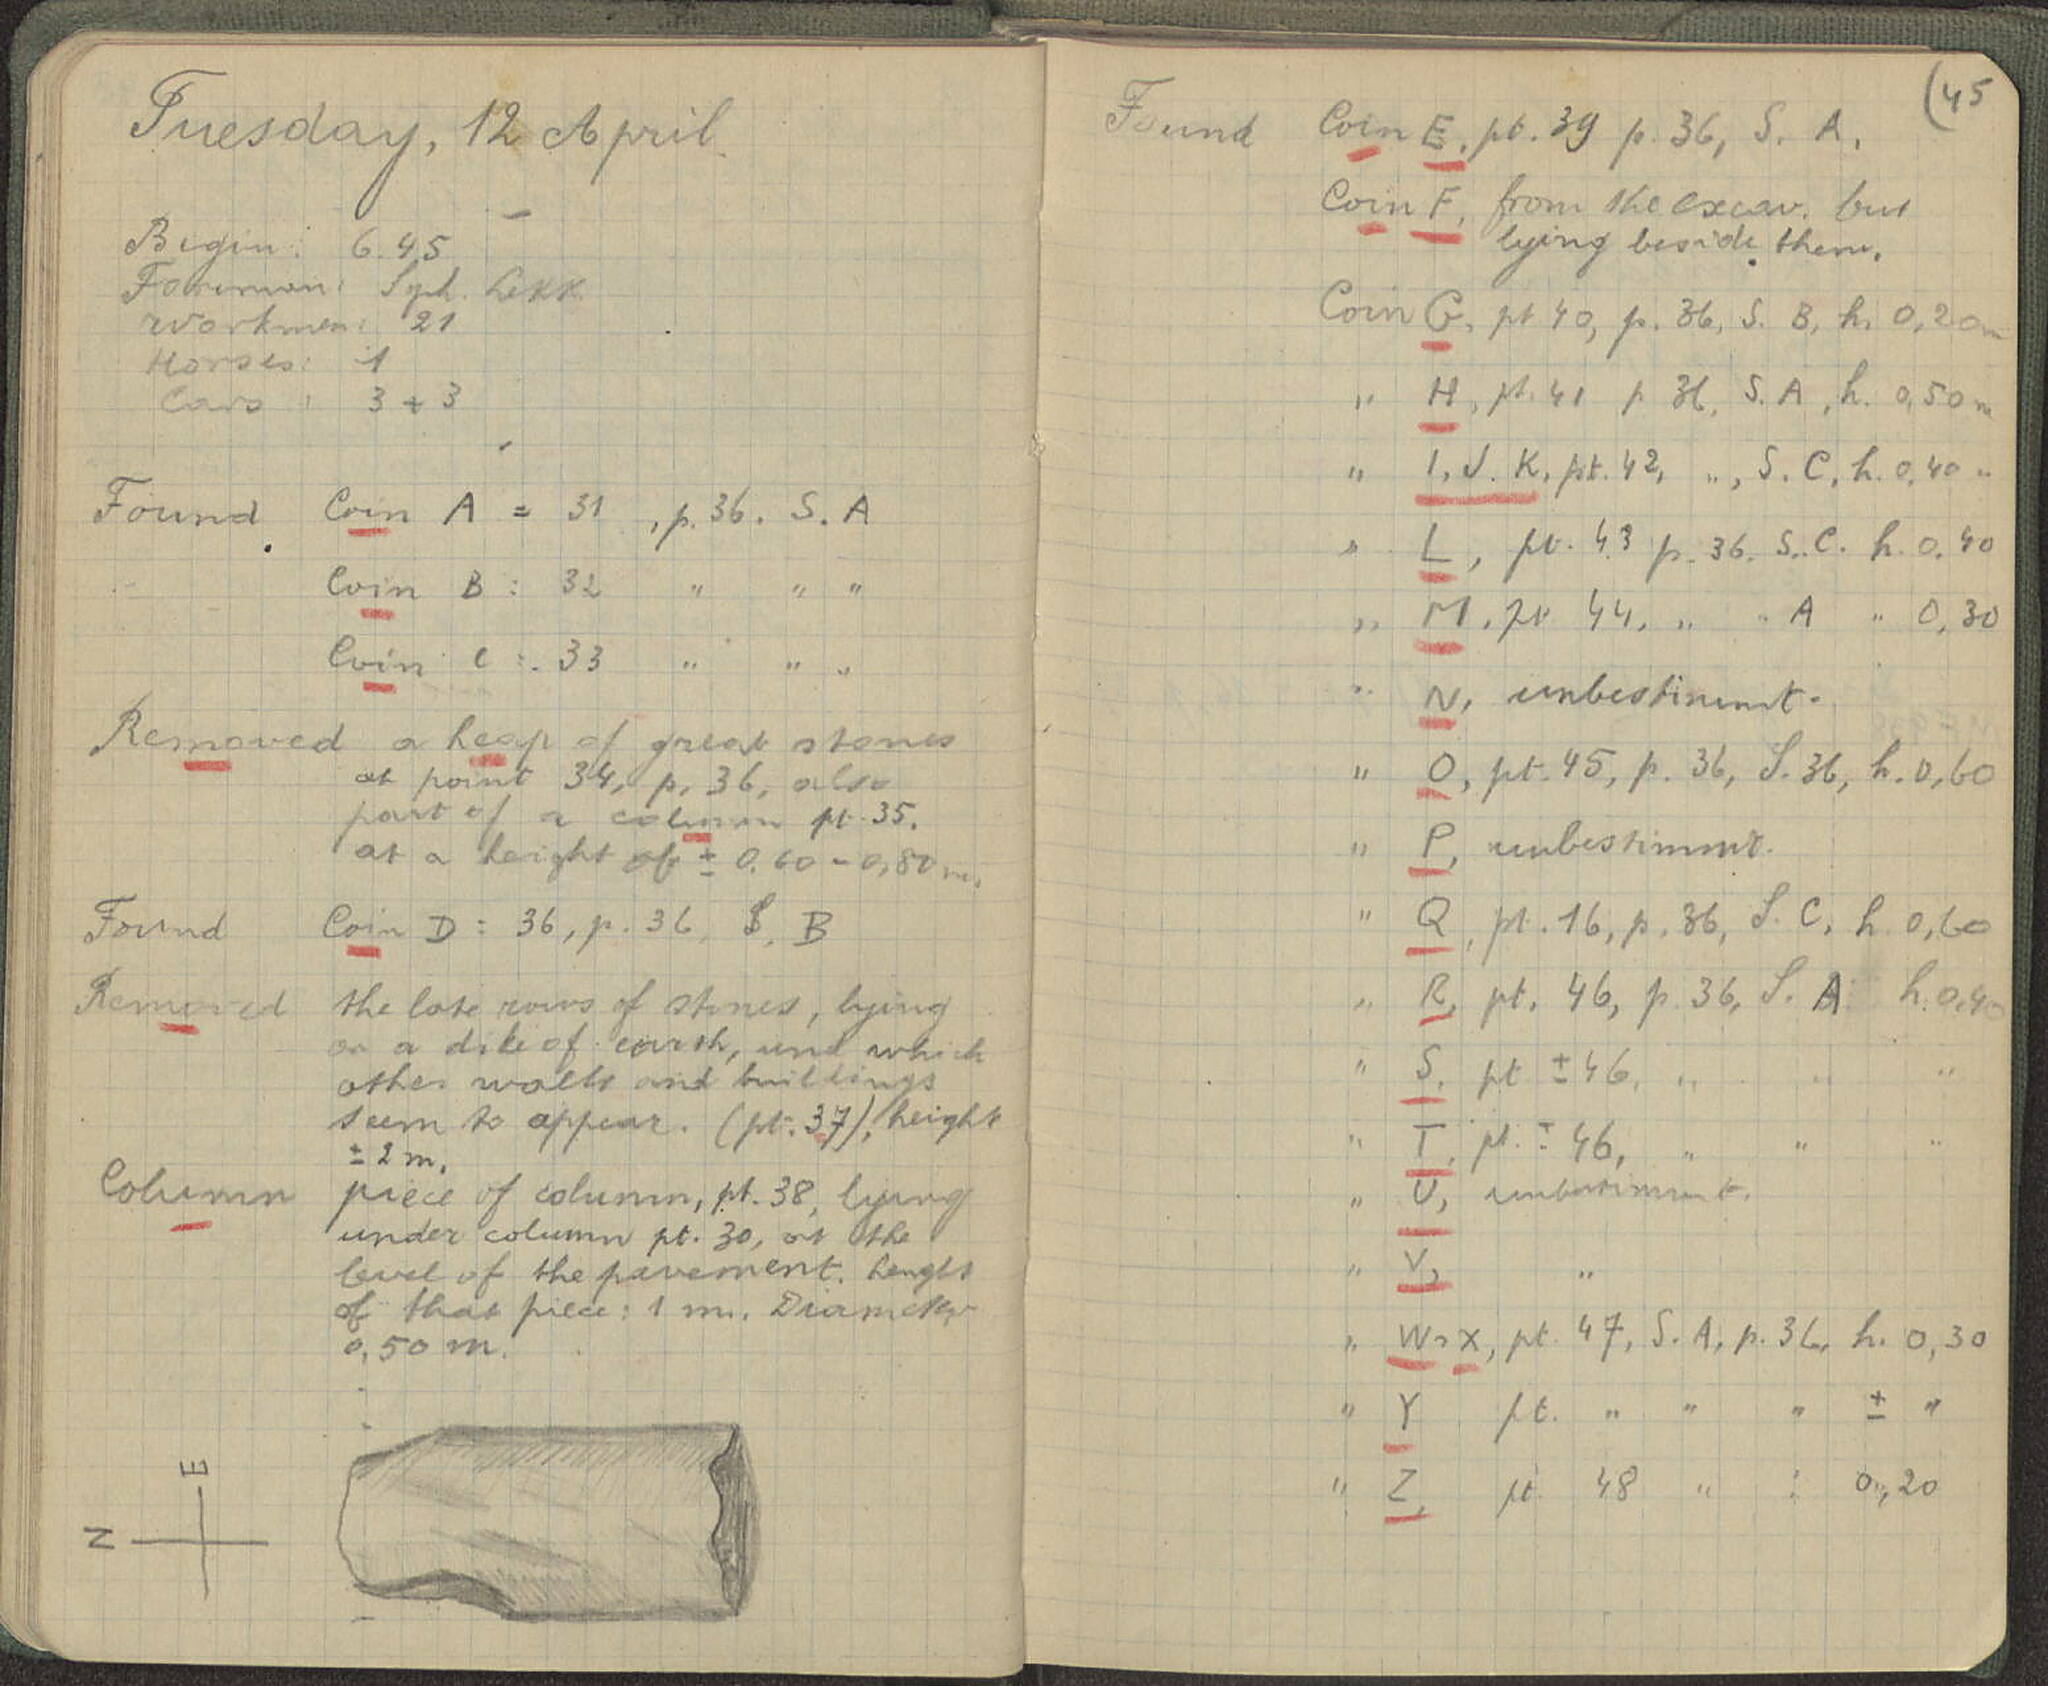 Tuesday, 12 April
Begin: 6.45
Foreman: Syh. Lekk.
Workmen: 21
Horses: 1
Cars: 3 + 3
Found Coin A = 31, p. 36. S. A
Coin B: 32 " " "
Coin C: 33 " " "
Removed a heap of great stones
at point 34, p. 36, also
part of a column pt. 35.
at a height of ± 0.60 - 0,80 m.
Found Coin D = 36, p. 36, S. B
Removed the late rows of stones, lying
on a dike of earth, und which
other walls and buildings
seem to appear. (pt. 37), height
± 2 m.
Column piece of column, pt. 38, lying
under column pt. 30, at the
level of the pavement. Lenght
of that piece: 1 m. Diameter
0,50 m.
E
N
(45
Found Coin E, pt. 39 p. 36, S. A.
Coin F, from the excav. but
lying beside them.
Coin G, pt 40, p. 36, S. B, h. 0,20m
" H, pt. 41 p 36, S. A, h. 0,50 m
" I, J. K, pt. 42, ", S. C, h. 0,40 "
" L, pt. 43 p. 36. S. C. h. 0.40
" M, pt 44, " " A " 0,30
" N, unbestimmt.
" O, pt. 45, p. 36, S. 36, h. 0,60
" P, unbestimmt.
" Q, pt. 16, p. 36, S. C, h. 0,60
" R, pt. 46, p. 36, S. A h. 0,40
" S, pt ± 46, " " "
" T, pt. ± 46, " " "
" U, unbestimmt.
" V, "
" W, X, pt. 47, S. A, p. 36, h. 0,30
" Y pt. " " " ± "
" Z, pt 48 " : 0,20